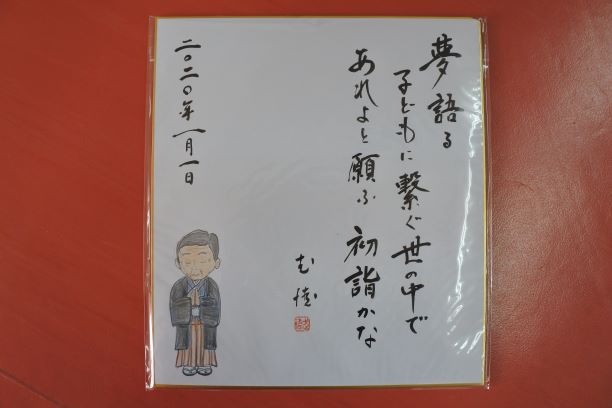 夢語る
子どもに繋ぐ世の中で
あれよと願ふ初詣かな
二〇二〇年一月一日